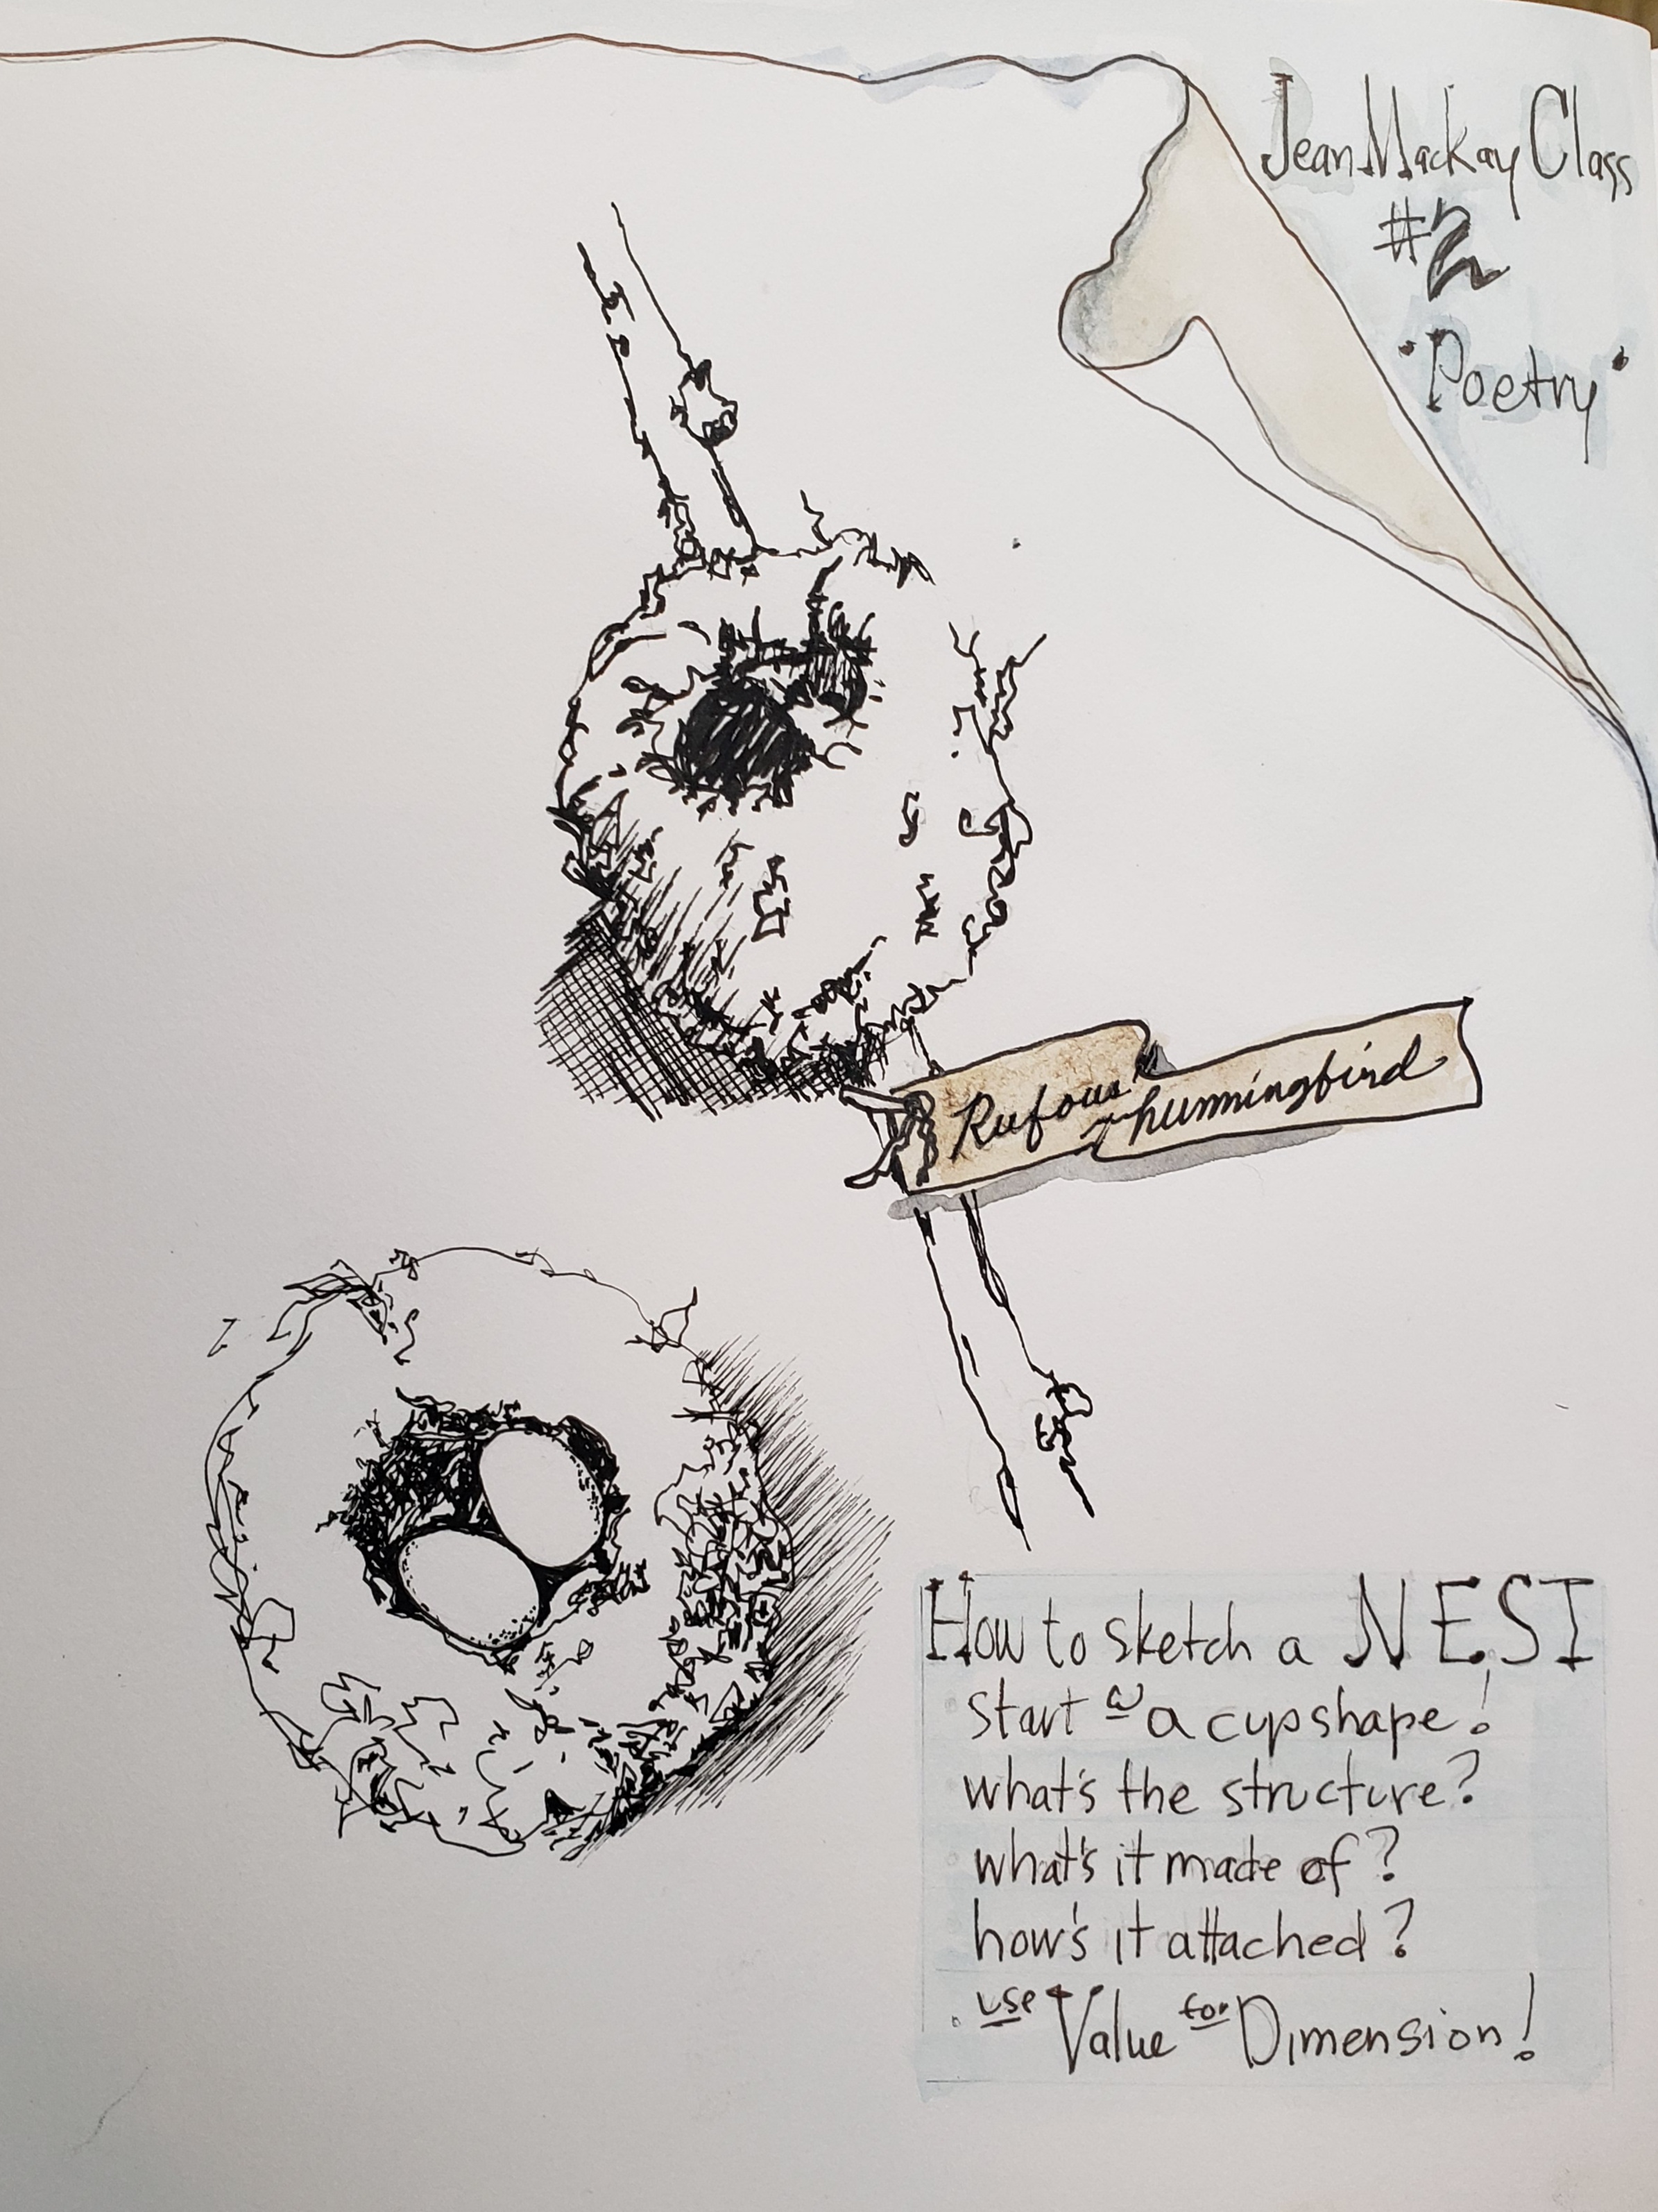 Jean Mackay Class
#2
"Poetry"
Rufous hummingbird
How to sketch a NEST
start w a cup shape!
what's the structure?
what's it made of?
how's it attached?
use Value for Dimension!